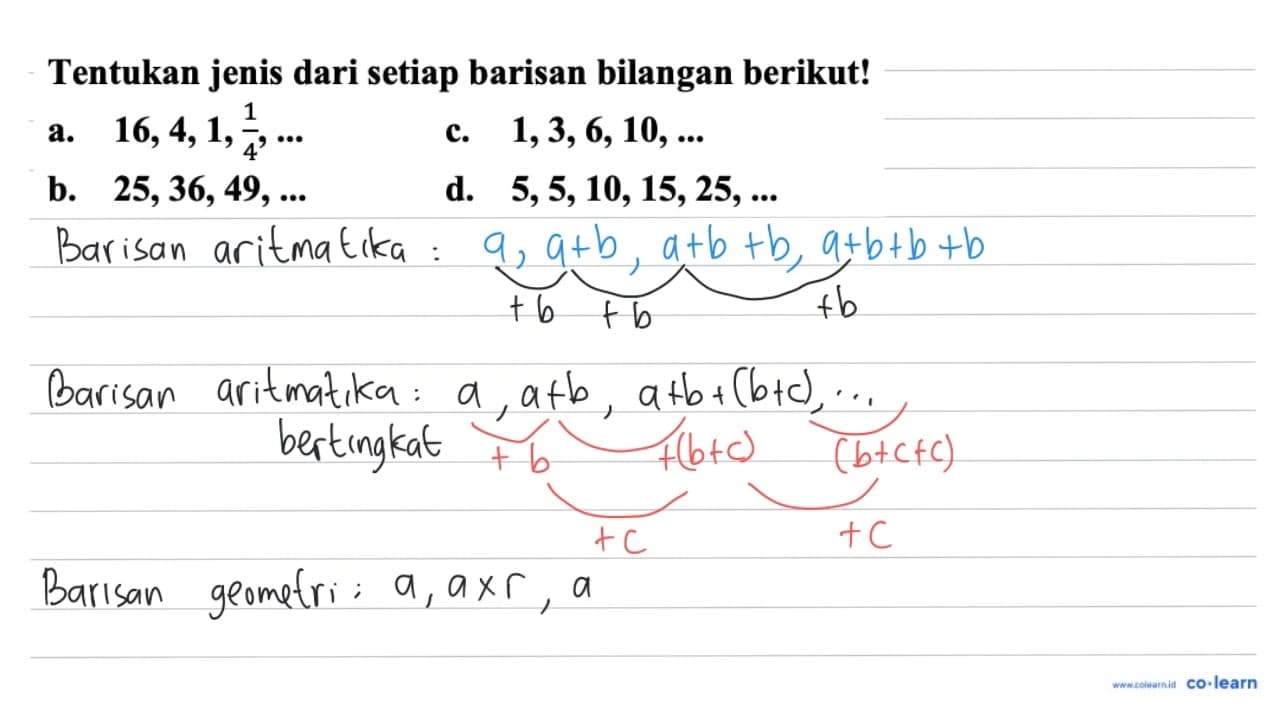 Tentukan jenis dari setiap barisan bilangan berikut!
a. 16, 4, 1, 1/4, ... c. 1, 3, 6, 10, ...
b. 25, 36, 49, ... d. 5, 5, 10, 15, 25, ...
Barisan aritmatika : a, a+b, a+b+b, a+b+b+b
+b +b +b
Barisan aritmatika : a, a+b, a+b+(b+c), ...
bertingkat +b +(b+c) (b+c+c)
+c +c
Barisan geometri : a, a×r, a
www.colearn.id co·learn